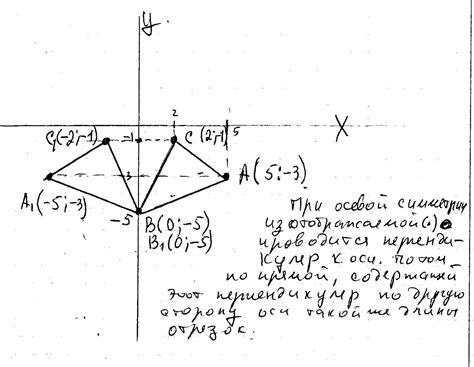 y
2
5
X
C₁(-2;-1)
-1
C (2;-1)
-3
A(5;-3)
A₁(-5;-3)
-5
B(0;-5)
B₁(0;-5)
При осевой симметрии
из отображаемой (·)
проводится перенди-
куляр к оси. Потом
по прямой, содержащей
этот перпендикуляр по другую
сторону оси такой же длины
отрезок.